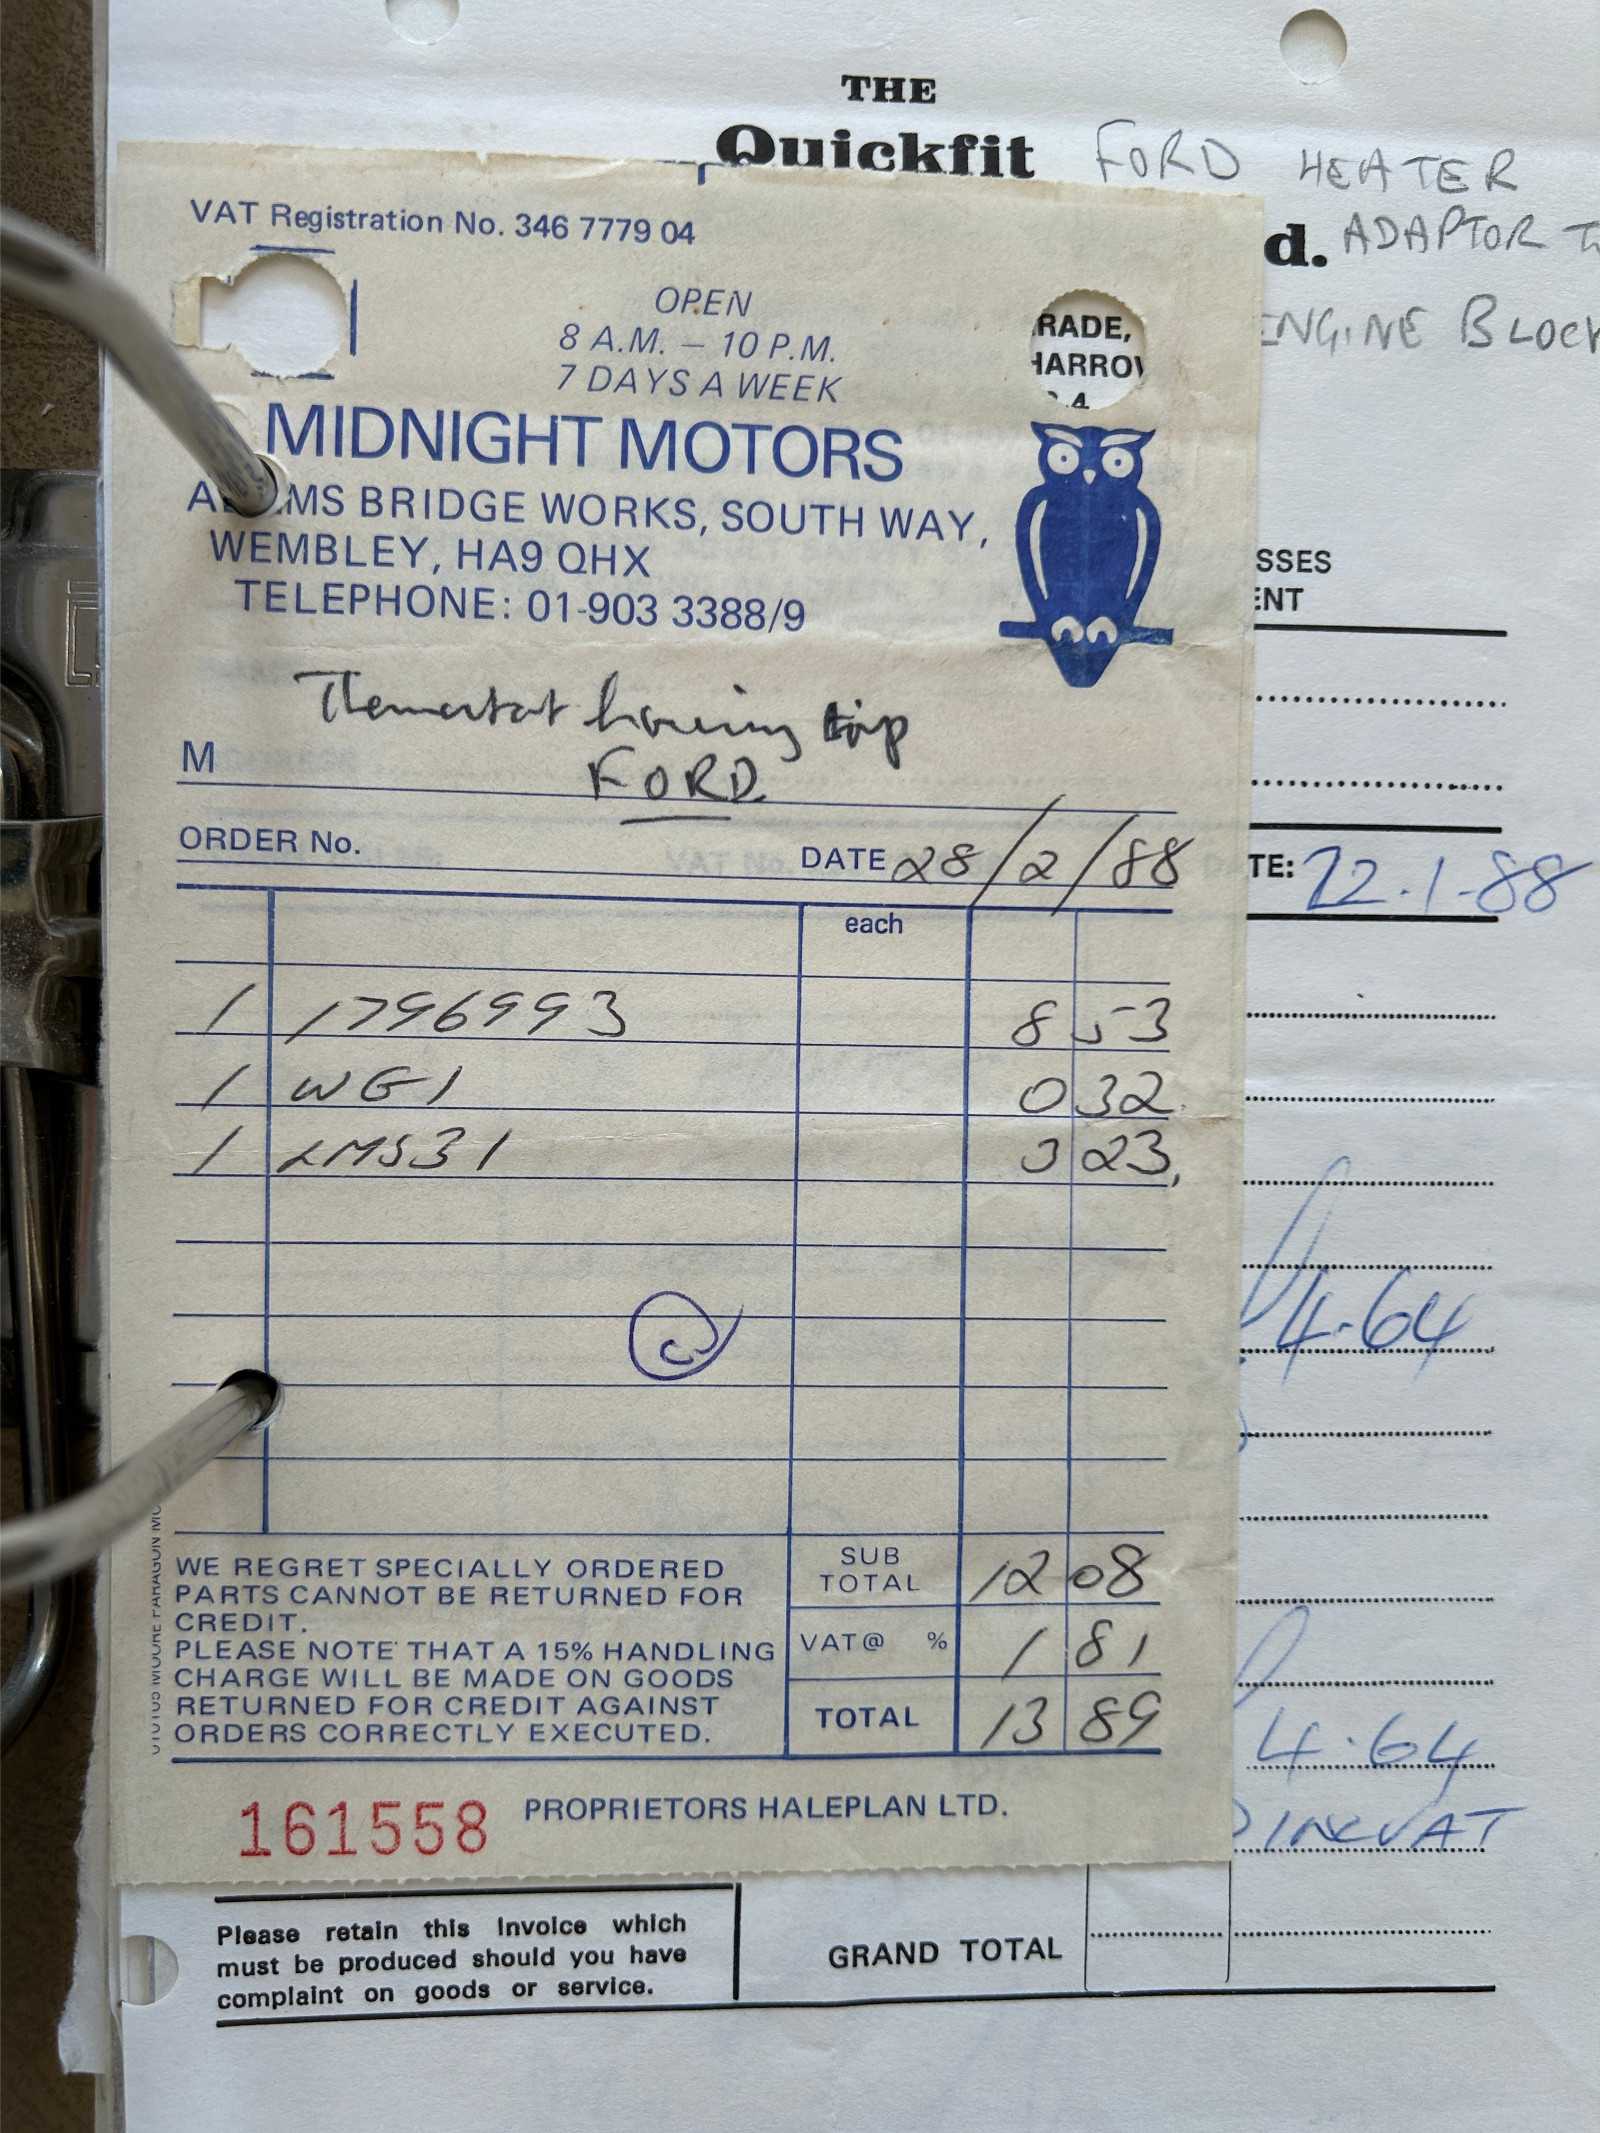 THE
Quickfit FORD HEATER
d. ADAPTOR
ENGINE BLOCK
VAT Registration No. 346 7779 04
OPEN
8 A.M. – 10 P.M.
7 DAYS A WEEK
RADE,
HARROW
MIDNIGHT MOTORS
BRIDGE WORKS, SOUTH WAY,
WEMBLEY, HA9 QHX
TELEPHONE: 01-903 3388/9
SSES
ENT
Thermostat housing top
M FORD
ORDER No. DATE 28/2/88
TE: 22.1-88
each
1 1796993 8 53
1 WG1 0 32
1 LMS31 3 23
4.64
SUB TOTAL 12 08
VAT@ % 1 81
TOTAL 13 89
WE REGRET SPECIALLY ORDERED
PARTS CANNOT BE RETURNED FOR
CREDIT.
PLEASE NOTE THAT A 15% HANDLING
CHARGE WILL BE MADE ON GOODS
RETURNED FOR CREDIT AGAINST
ORDERS CORRECTLY EXECUTED.
4.64
INC VAT
161558 PROPRIETORS HALEPLAN LTD.
Please retain this invoice which
must be produced should you have
complaint on goods or service.
GRAND TOTAL